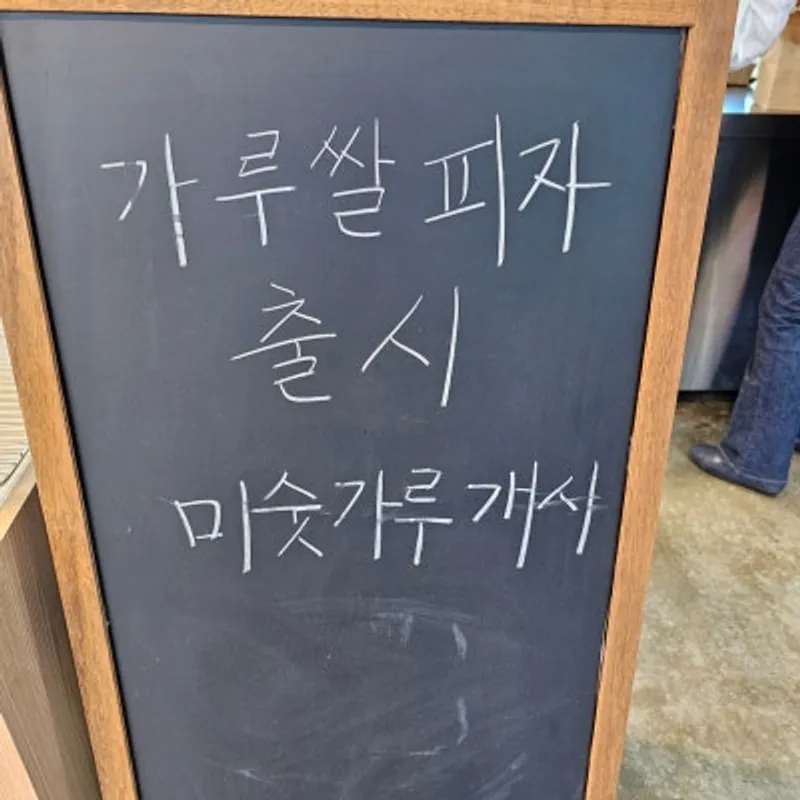 가루쌀 피자
출시
미숫가루 개시